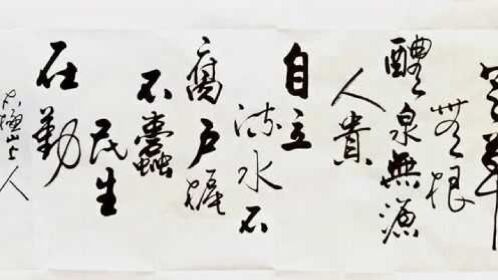 芝草
無根
醴泉無源
人貴
自立
流水不
腐戶樞
不蠹
民生
在勤
山上人